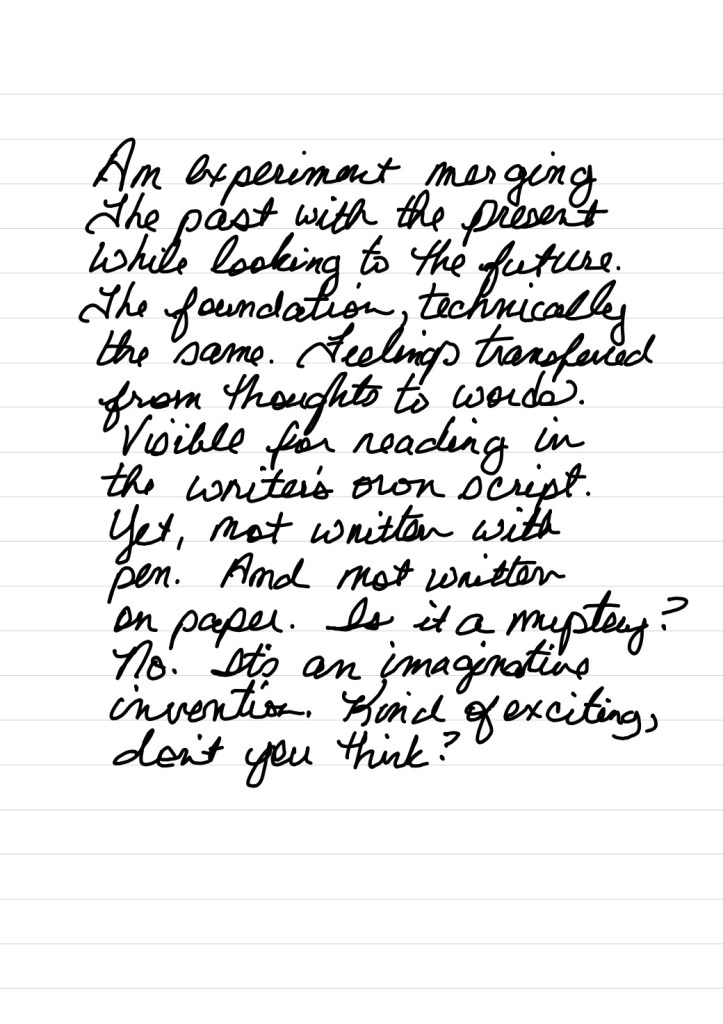 An experiment merging
the past with the present
while looking to the future.
The foundation, technically
the same. Feelings transferred
from thoughts to words.
Visible for reading in
the writer's own script.
Yet, not written with
pen. And not written
on paper. Is it a mystery?
No. It's an imaginative
invention. Kind of exciting,
don't you think?